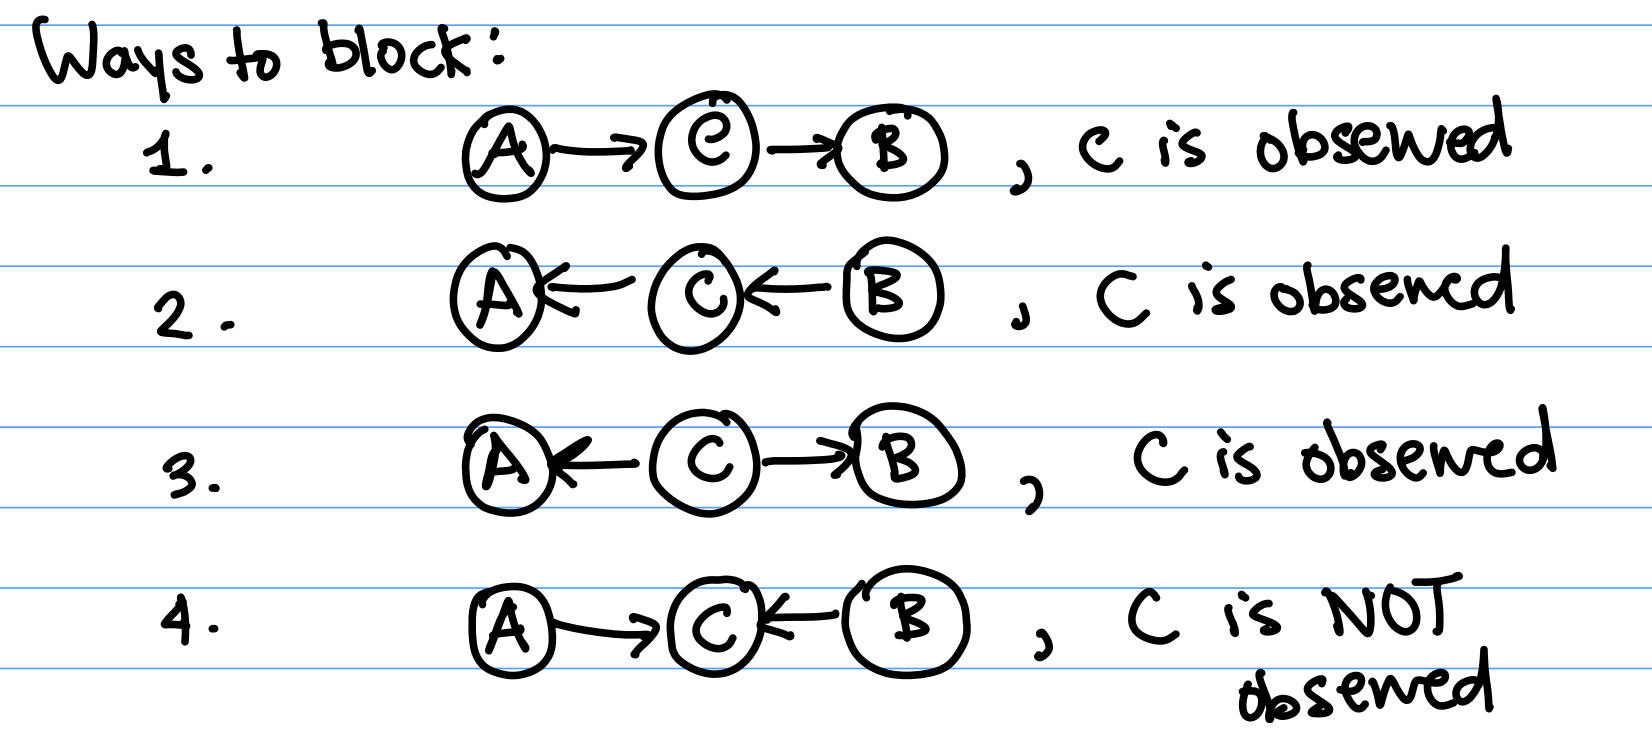 Ways to block:
1. A → C → B , C is observed
2. A ← C ← B , C is observed
3. A ← C → B , C is observed
4. A → C ← B , C is NOT
observed